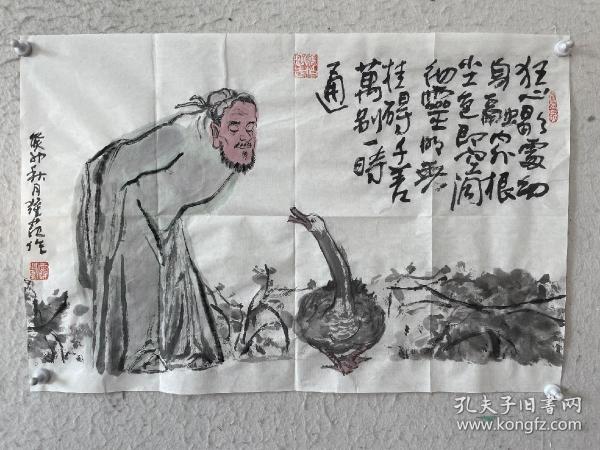 狂心歇處幻
身融内外根
尘色即空洞
彻靈明無
挂碍千差
萬别一時
通
癸卯秋月作
孔夫子旧书网
www.kongfz.com